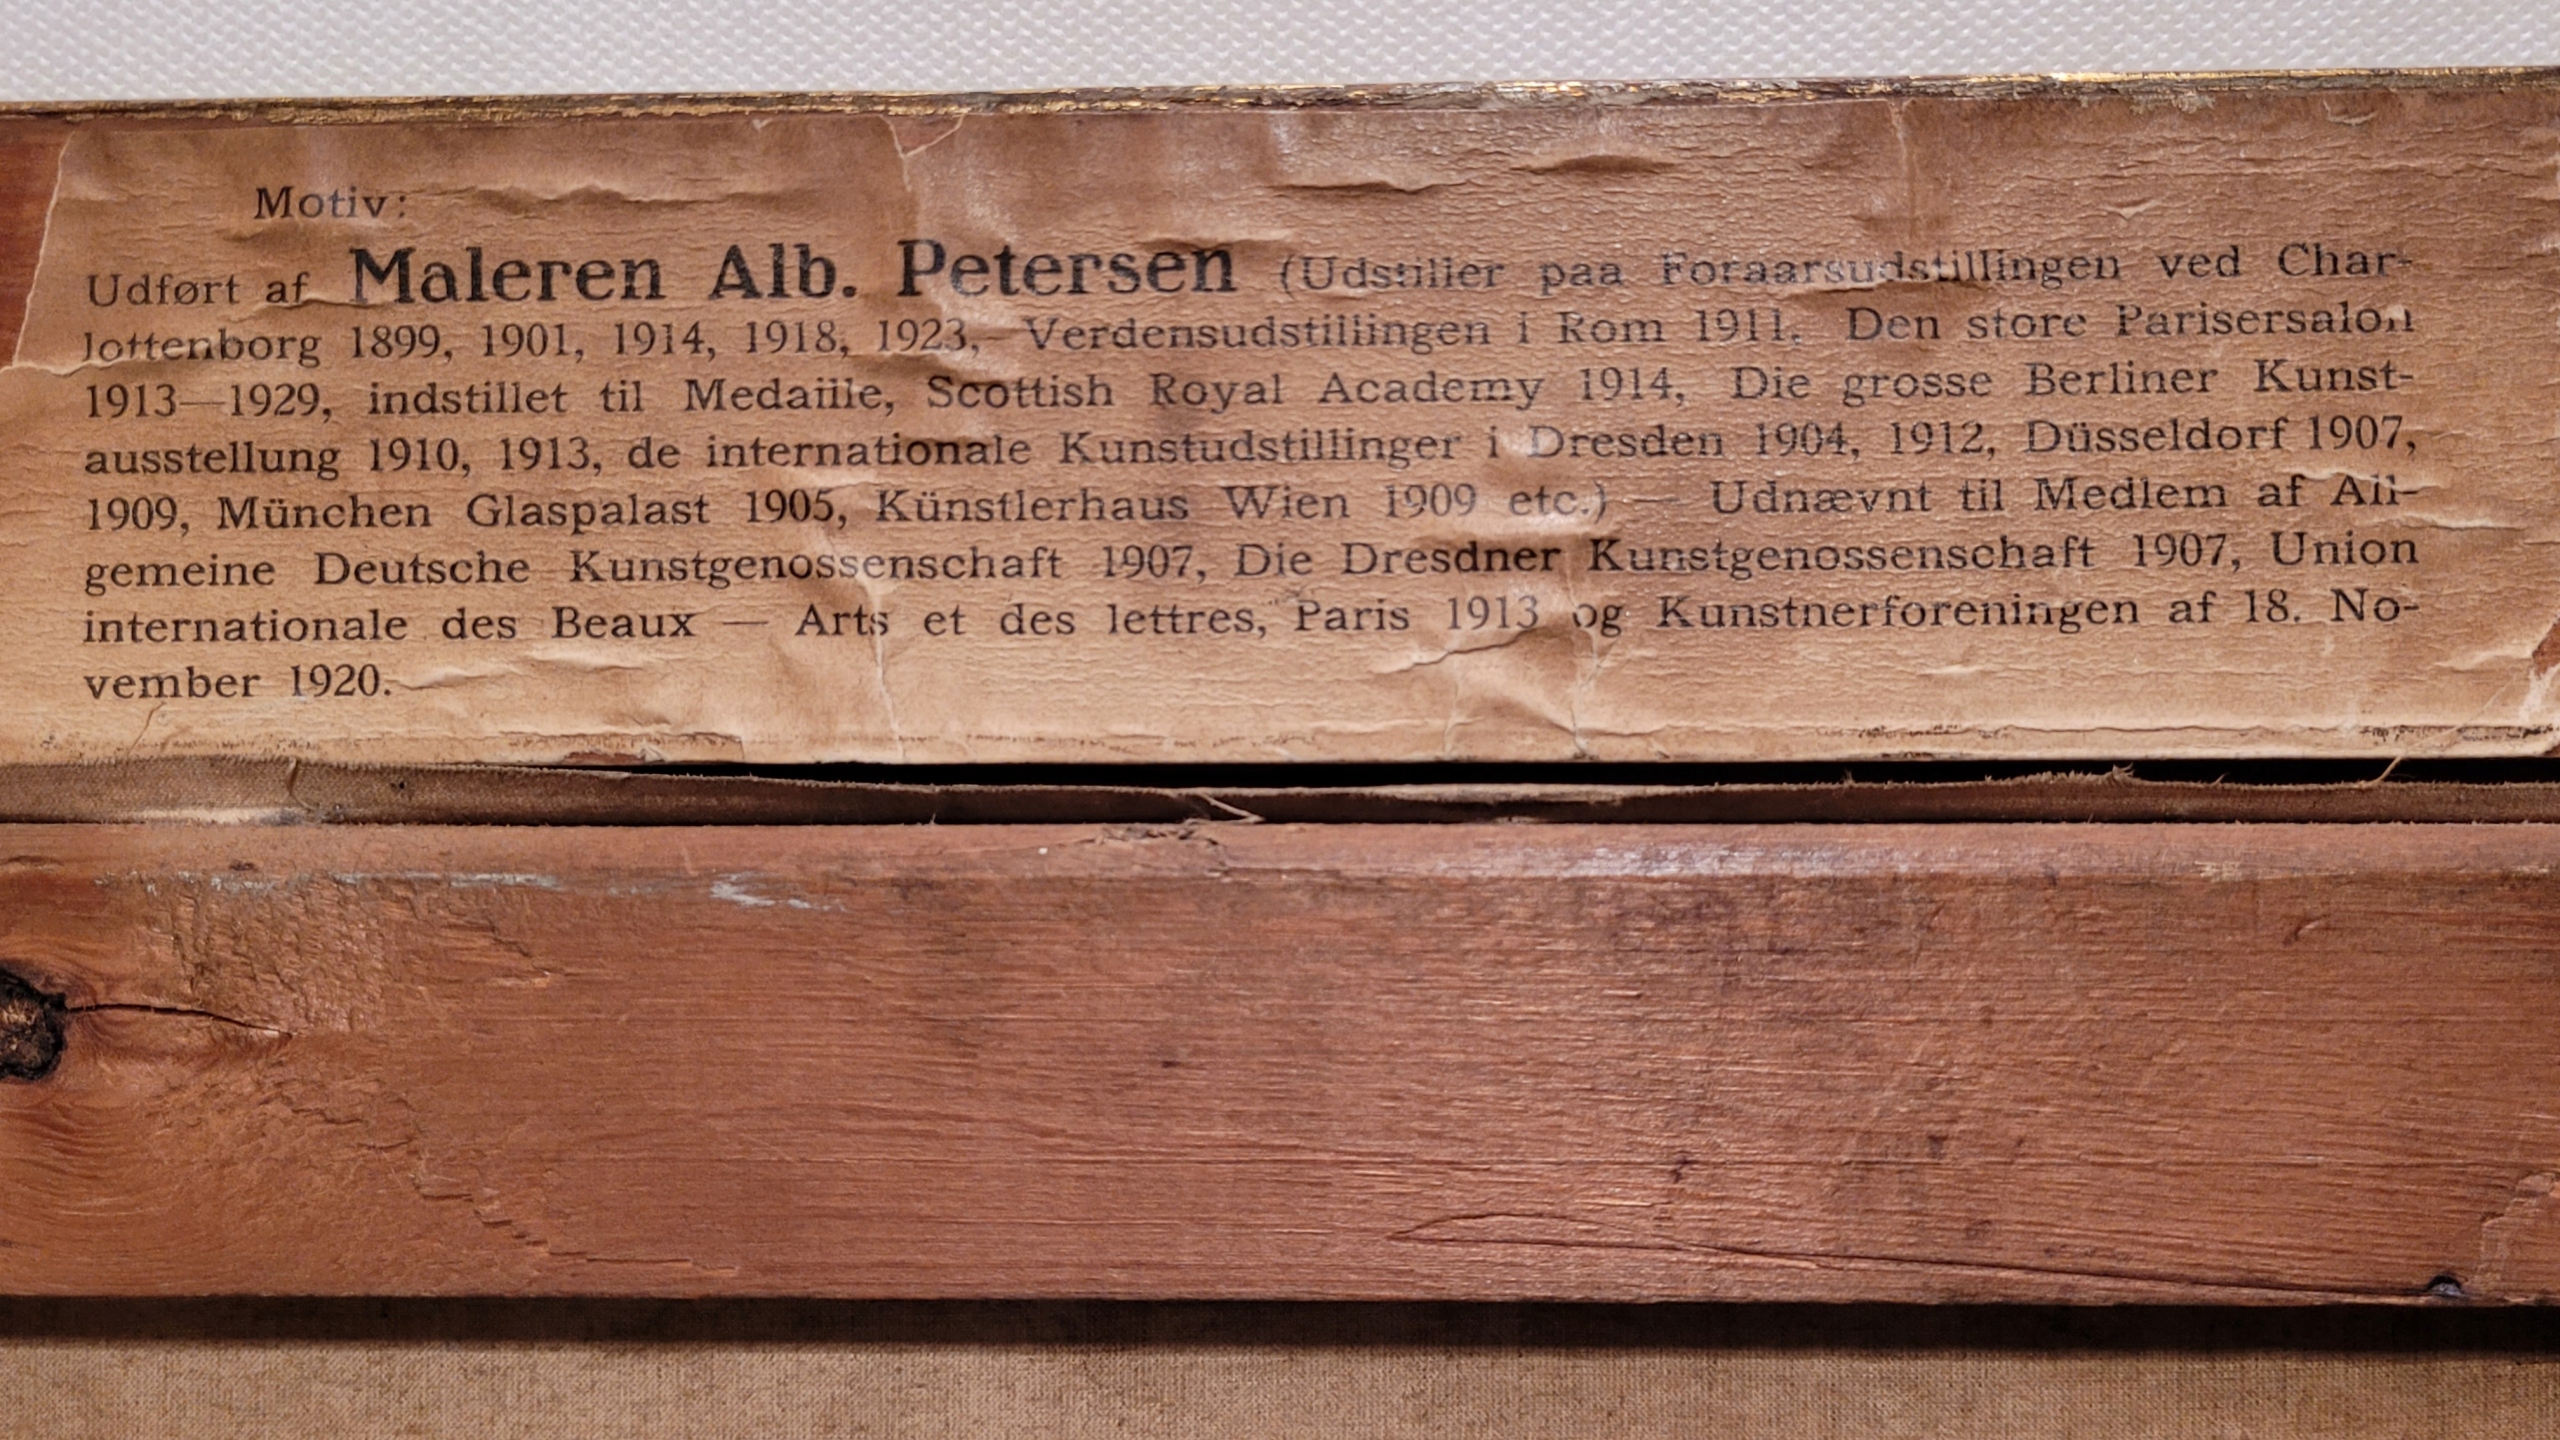 Motiv:
Udført af Maleren Alb. Petersen (Udstiller paa Foraarsudstillingen ved Char-
lottenborg 1899, 1901, 1914, 1918, 1923, Verdensudstillingen i Rom 1911. Den store Parisersalon
1913—1929, indstillet til Medaille, Scottish Royal Academy 1914, Die grosse Berliner Kunst-
ausstellung 1910, 1913, de internationale Kunstudstillinger i Dresden 1904, 1912, Düsseldorf 1907,
1909, München Glaspalast 1905, Künstlerhaus Wien 1909 etc.) — Udnævnt til Medlem af All-
gemeine Deutsche Kunstgenossenschaft 1907, Die Dresdner Kunstgenossenschaft 1907, Union
internationale des Beaux — Arts et des lettres, Paris 1913 og Kunstnerforeningen af 18. No-
vember 1920.